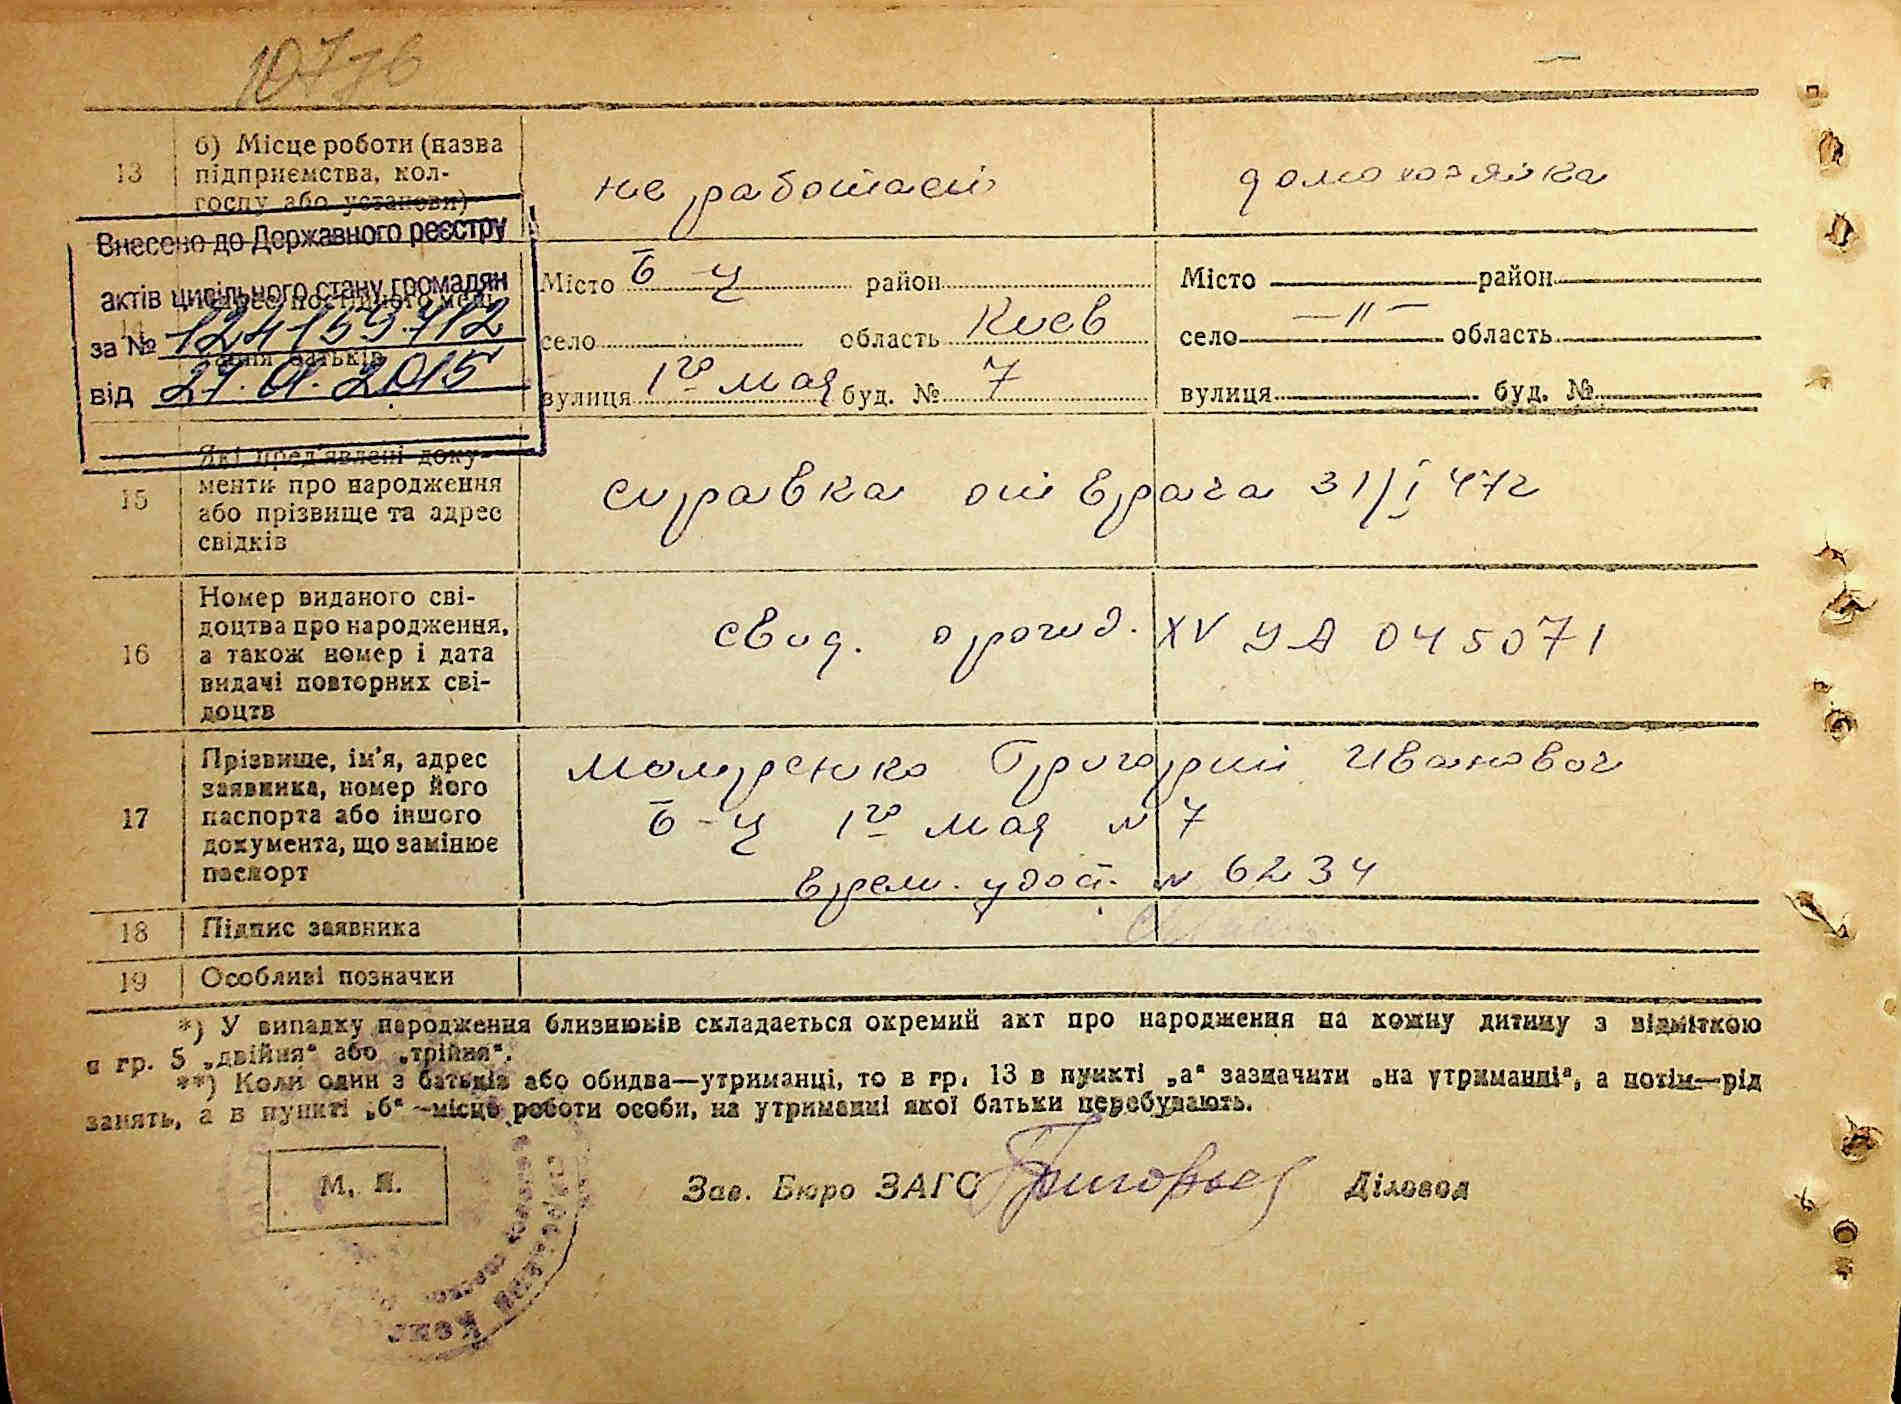 13
б) Місце роботи (назва
підприємства, кол-
госпу або установи)
не работает
домохозяйка
Внесено до Державного реєстру
актів цивільного стану громадян
за № 124159712
від 27.01.2015
14
Місто Б-Ц район
село область Киев
вулиця 1го мая буд. № 7
Місто район
село —"— область
вулиця буд. №
15
Які пред'явлені доку-
менти про народження
або прізвище та адрес
свідків
справка от врача 31/I 47г
16
Номер виданого сві-
доцтва про народження,
а також номер і дата
видачі повторних сві-
доцтв
свид. о рожд. XV УА 045071
17
Прізвище, ім'я, адрес
заявника, номер його
паспорта або іншого
документа, що замінює
паспорт
Григорий Иванович
Б-Ц 1го мая № 7
врем. удост. № 6234
18
Підпис заявника
19
Особливі позначки
*) У випадку народження близнюків складається окремий акт про народження на кожну дитину з відміткою
в гр. 5 „двійня" або „трійня".
**) Коли один з батьків або обидва—утриманці, то в гр. 13 в пункті „а" зазначити „на утриманні", а потім—рід
занять, а в пункті „б"—місце роботи особи, на утриманні якої батьки перебувають.
М. П.
Зав. Бюро ЗАГС
Діловод